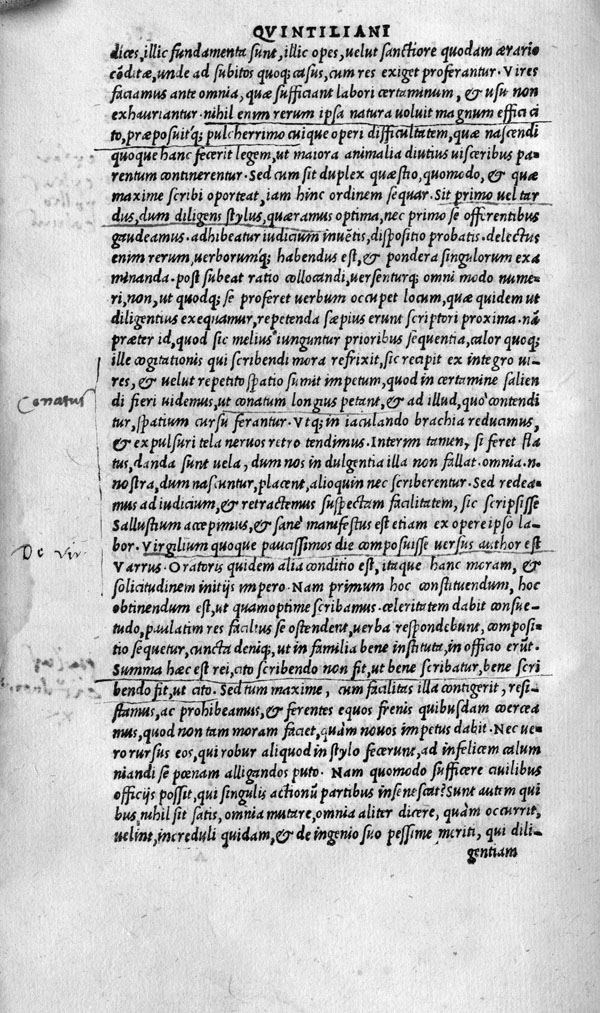 QVINTILIANI
dices, illic fundamenta sunt, illic opes, velut sanctiore quodam ærario
cõditæ, unde ad subitos quoq; casus, cum res exiget proferantur. Vires
faciamus ante omnia, quæ sufficiant labori certaminum, & usu non
exhauriantur. nihil enim rerum ipsa natura voluit magnum effici ci
to, præposuitq; pulcherrimo cuique operi difficultatem, quæ nascẽdi
quoque hanc fecerit legem, ut maiora animalia diutius visceribus pa-
rentum continerentur. Sed cum sit duplex quæstio, quomodo, & quæ
maxime scribi oporteat, iam hinc ordinem sequar. Sit primo vel tar
dus, dum diligens stylus, quæramus optima, nec primo se offerentibus
gaudeamus. adhibeatur iudicium invẽtis, dispositio probatis. delectus
enim rerum, verborumq; habendus est, & pondera singulorum exa
minanda. post subeat ratio collocandi, versenturq; omni modo nume-
ri, non, ut quodq; se proferet verbum occupet locum, quæ quidem ut
diligentius exequamur, repetenda sæpius erunt scriptori proxima. nã
præter id, quod sic melius iunguntur prioribus sequentia, calor quoq;
ille cogitationis qui scribendi mora refrixit, sic recipit ex integro vi-
res, & velut repetito spatio sumit impetum, quod in certamine salien
Conatus
di fieri videmus, ut conatum longius petant, & ad illud, quò contendi
tur, spatium cursu ferantur. Vtq; in iaculando brachia reducimus,
& expulsuri tela nervos retro tendimus. Interim tamen, si feret fla
tus, danda sunt vela, dum nos indulgentia illa non fallat. omnia.n.
nostra, dum nascuntur, placent, alioquin nec scriberentur. Sed redea-
mus ad iudicium, & retractemus suspectam facilitatem, sic scripsisse
Sallustium accepimus, & sanè manifestus est etiam ex opere ipso la-
De Vir
bor. Virgilium quoque paucissimos die composuisse versus author est
Varrus. Oratoris quidem alia conditio est, itaque hanc moram, &
solicitudinem initijs impero. Nam primum hoc constituendum, hoc
obtinendum est, ut quamoptime scribamus. celeritatem dabit consue-
tudo, paulatim res facilius se ostendent, verba respondebunt, composi-
tio sequetur, cuncta deniq; ut in familia bene instituta, in officio erũt.
Summa hæc est rei, cito scribendo non fit, ut bene scribatur, bene scri
bendo fit, ut cito. Sed tum maxime, cum facilitas illa contigerit, resi-
stamus, ac prohibeamus, & ferentes equos frenis quibusdam coercea
mus, quod non tam moram faciet, quàm novos impetus dabit. Nec ve
ro rursus eos, qui robur aliquod in stylo fecerunt, ad infelicem calum
niandi se pœnam alligandos puto. Nam quomodo sufficere civilibus
officijs possit, qui singulis actionũ partibus insenescat? Sunt autem qui
bus, nihil sit satis, omnia mutare, omnia aliter dicere, quàm occurrit,
velint, increduli quidam, & de ingenio suo pessime meriti, qui dili-
gentiam